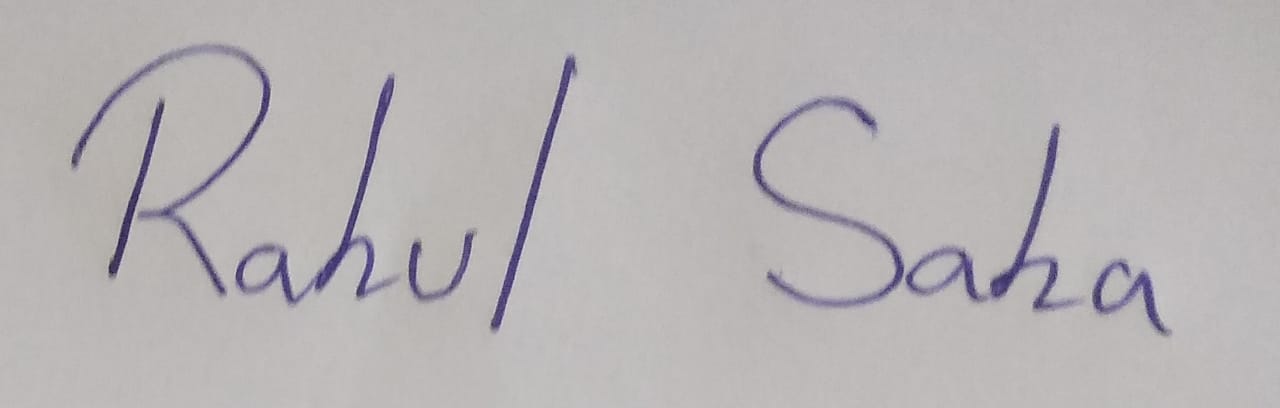 Rahul Saha